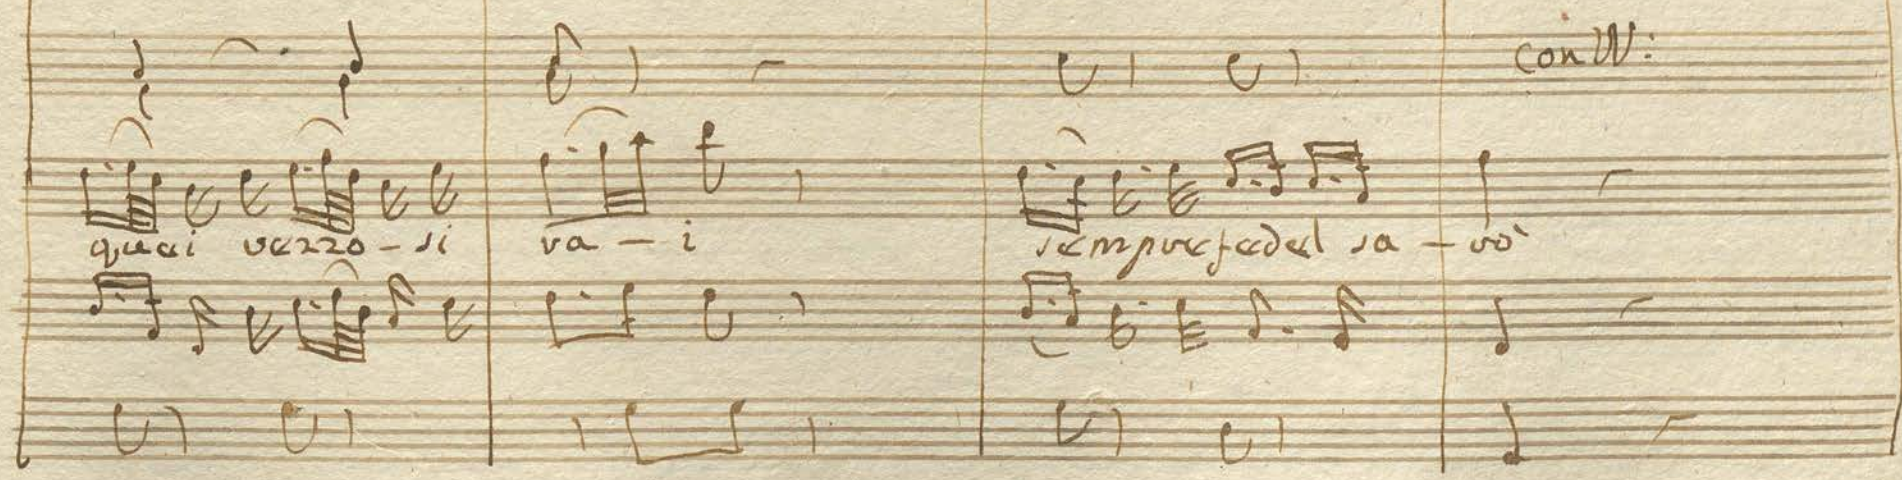 con VV:
quei vezzo - si va - i sempre fedel sa - rò